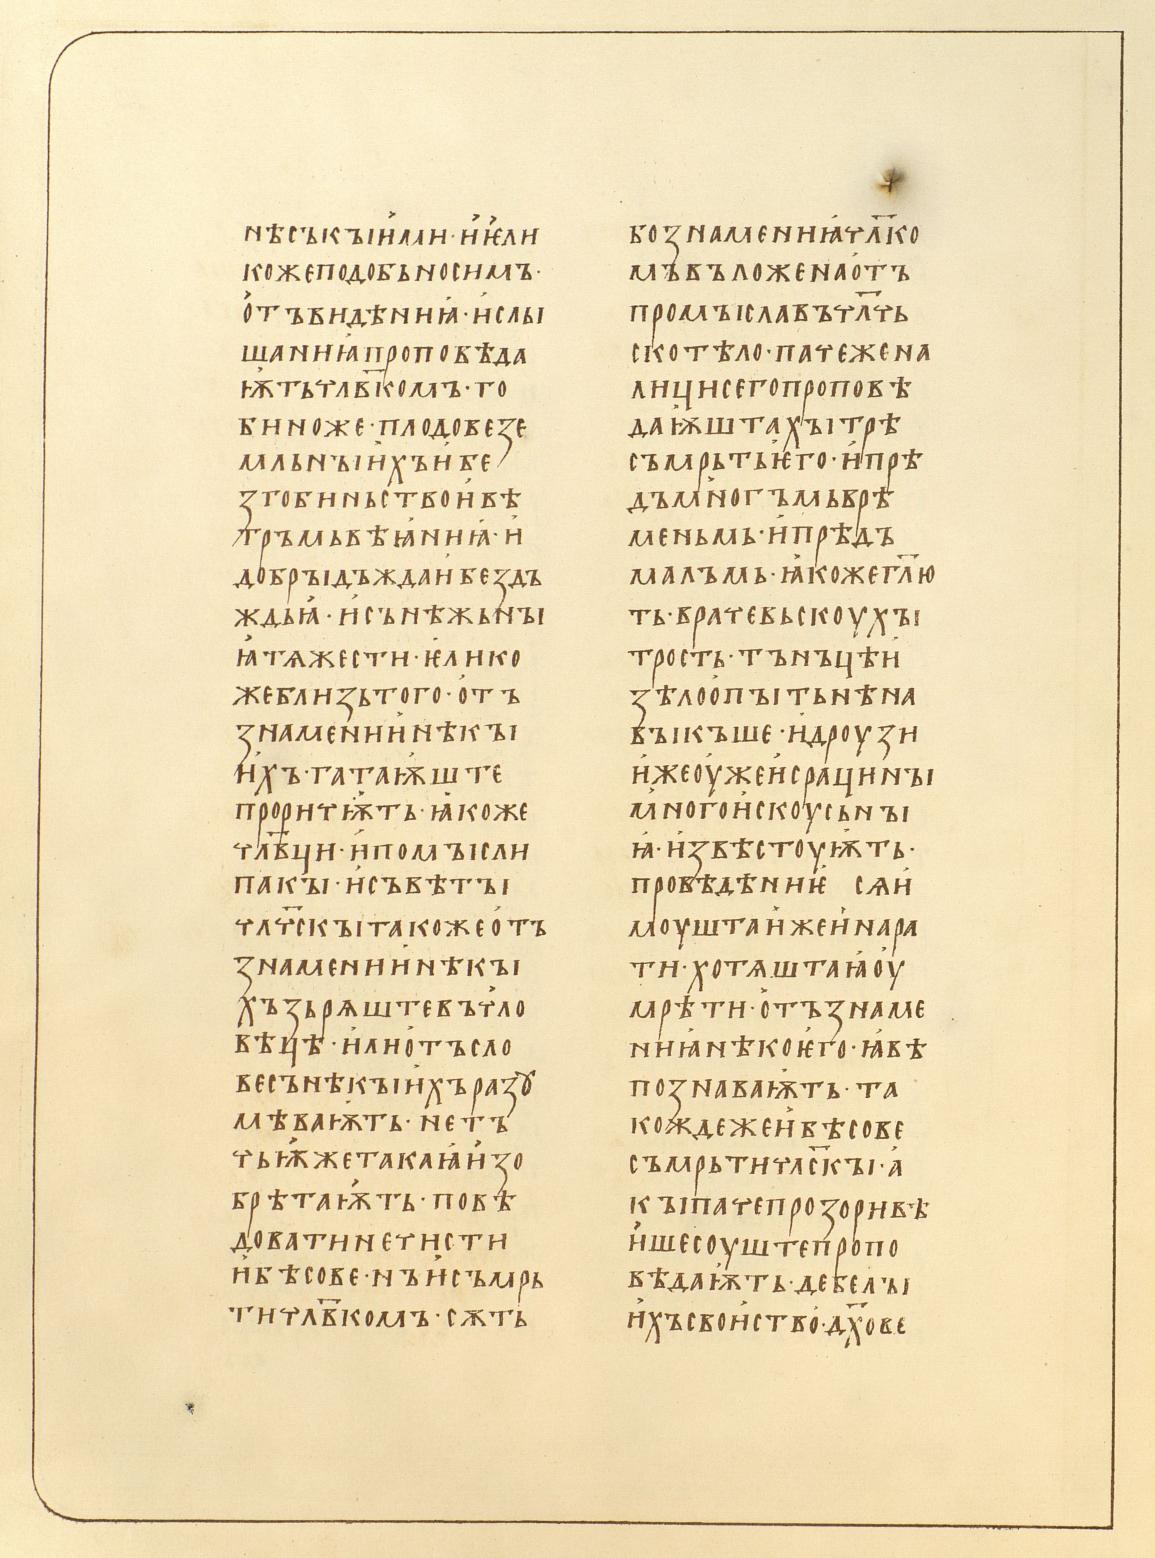 нѣсъкꙑи́ми· и́ѥ́ли
кожеподобьносимъ·
о́тъвидѣниꙗ́· и́слꙑ
шаниꙗ́проповѣда
ѭ́тьчлв҃комъ· го
биноже· плодовезе
мльнꙑи́хъи́бе
згобиньствои́вѣ
тръмьвѣꙗ́ниꙗ́· и́
добрꙑдъждаи́бездъ
ждьꙗ́· и́сънѣжьнꙑ
ꙗ́тѧжести· ѥ́лико
жеблизьтого· о́тъ
знамении́нѣкꙑ
и́хъ· гатаѭ́ште
проричѭ́ть· ꙗ́коже
члв҃ци· и́помꙑсли
пакꙑ· и́съвѣтꙑ
члч҃скꙑтакожео́тъ
знамении́нѣкꙑ
хъзьрѧштевъчло
вѣцѣ· и́лио́тъсло
весънѣкꙑи́хъразꙋ
мѣваѭ́ть· нетъ
чьѭ́жетакаꙗ́и́зо
брѣтаѭ́ть· повѣ
доватинечисти
и́бѣсове· нъи́съмрь
тичлв҃комъ· сѫть
бознамениꙗ́чл҃ко
мъвъложенао́тъ
промꙑславъчл҃чь
скотѣло· пачежена
лицисегопроповѣ
даѭ́штахꙑтрѣ
съмрьтьѥ́го· и́прѣ
дъмногъмьврѣ
меньмь· и́прѣдъ
малъмь· ꙗ́кожегл҃ю
ть· врачевьскоухꙑ
трость· тънъцѣи́
зѣлоо́пꙑтьнѣна
вꙑкъше· и́друзи
и́жеоу́жеи́срацинꙑ
многои́скоусьнꙑ
ꙗ́· и́звѣстоуѭ́ть·
провѣдѣниѥ́ сѧи́
моуштаи́жеи́нара
ти· хотѧштаꙗ́оу́
мрѣти· о́тъзнаме
ниꙗ́нѣкоѥ́го· ꙗ́вѣ
познаваѭ́ть· та
кождежеи́бѣсове
съмрьтичлс҃кꙑ· а́
кꙑпачепрозоривѣ
и́шесоуштепропо
вѣдаѭ́ть· дебелꙑ
и́хъсвои́ство́· дх҃ове